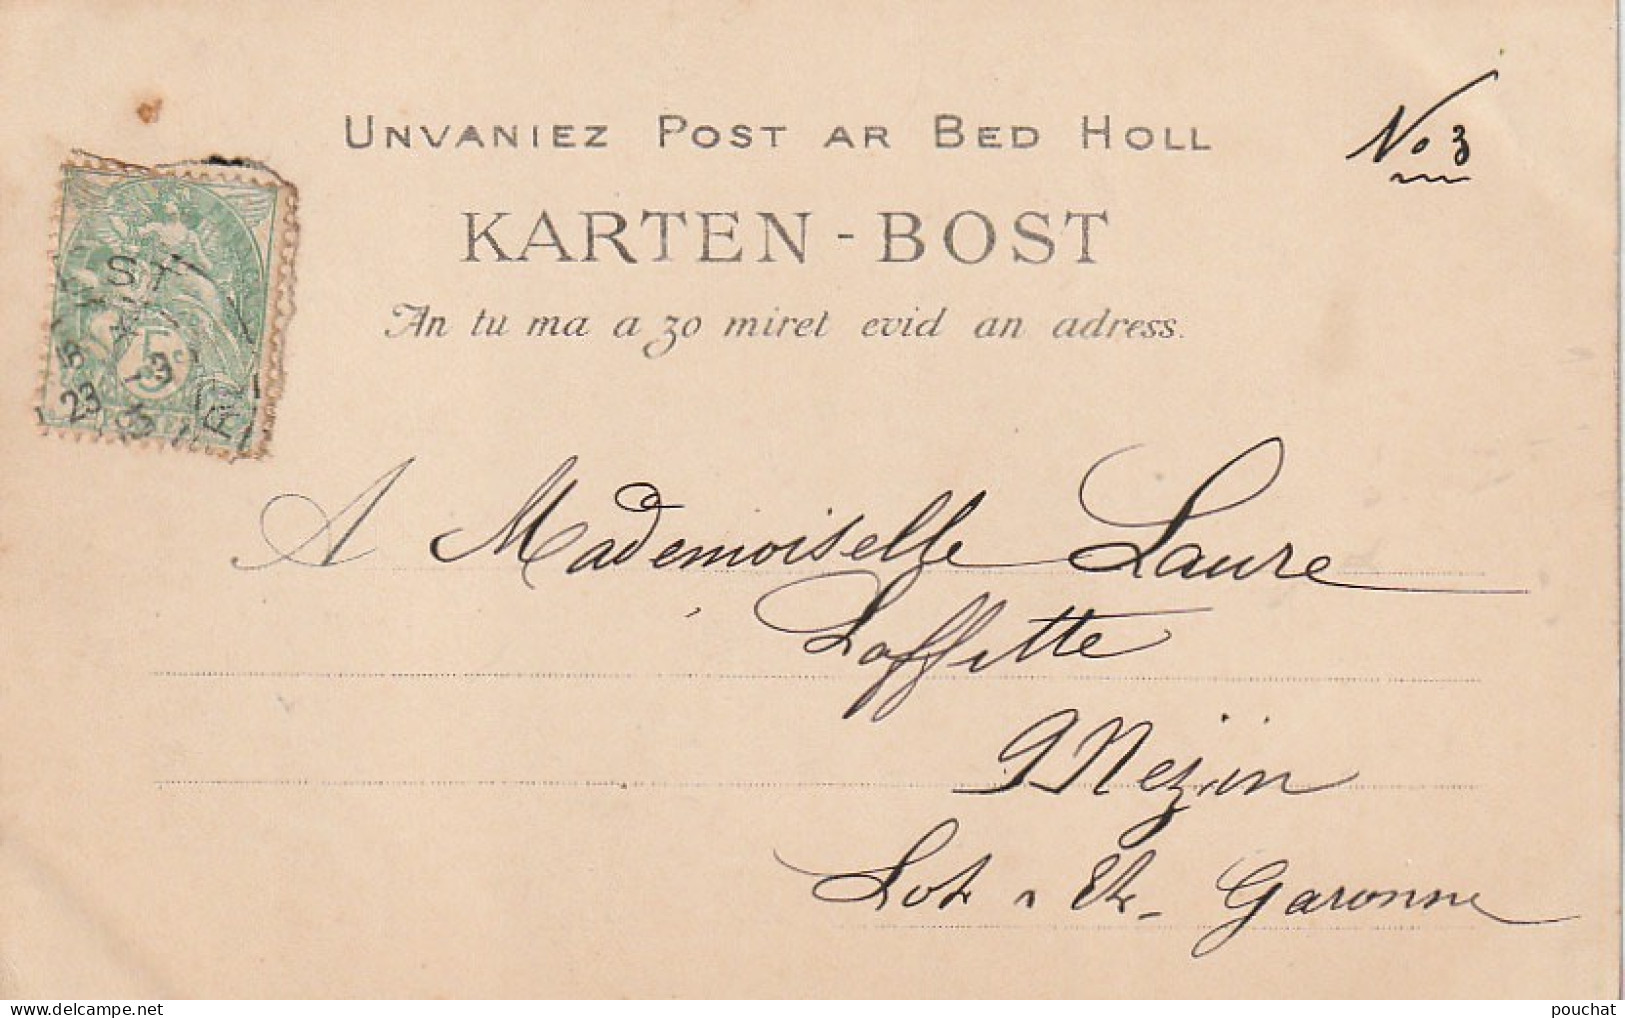 UNVANIEZ POST AR BED HOLL
No 3
KARTEN-BOST
An tu ma a zo miret evid an adress.
5
23
A Mademoiselle Laure
Laffitte
Mézin
Lot - Et - Garonne
pouchat